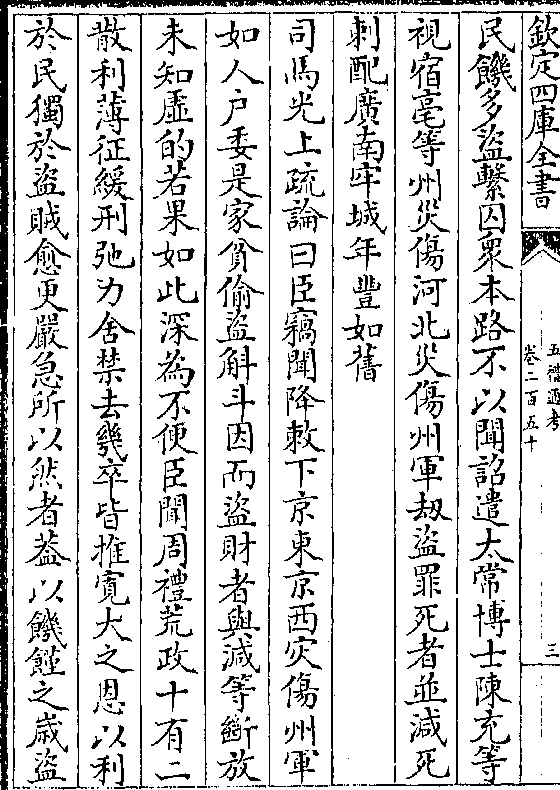 欽定四庫全書
五禮通考
卷二百五十
三
民饑多盜繫囚衆本路不以聞詔遣太常博士陳充等
視宿亳等州災傷河北災傷州軍刼盜罪死者並減死
刺配廣南牢城年豐如舊
司馬光上疏論曰臣竊聞降敕下京東京西灾傷州軍
如人户委是家貧偷盜斛斗因而盜財者與減等斷放
未知虛的若果如此深為不便臣聞周禮荒政十有二
散利薄征緩刑弛力舍禁去幾卒皆推寛大之恩以利
於民獨於盜賊愈更嚴急所以然者葢以饑饉之歳盜